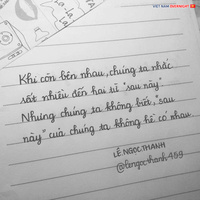 VIET NAM OVERNIGHT
Khi còn bên nhau, chúng ta nhắc
rất nhiều đến hai từ "sau này"
Nhưng chúng ta không biết, "sau
này" của chúng ta không hề có nhau.
LÊ.NGOC.THANH
@lengocthanh459